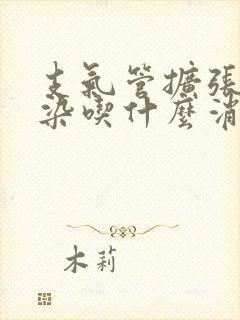 支氣管擴張
染喫什麼消
木莉